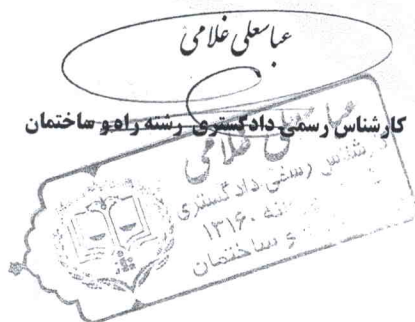 عباسعلی غلامی
کارشناس رسمی دادگستری رشته راه و ساختمان
عباسعلی غلامی
کارشناس رسمی دادگستری
۱۳۱۶۰
و ساختمان